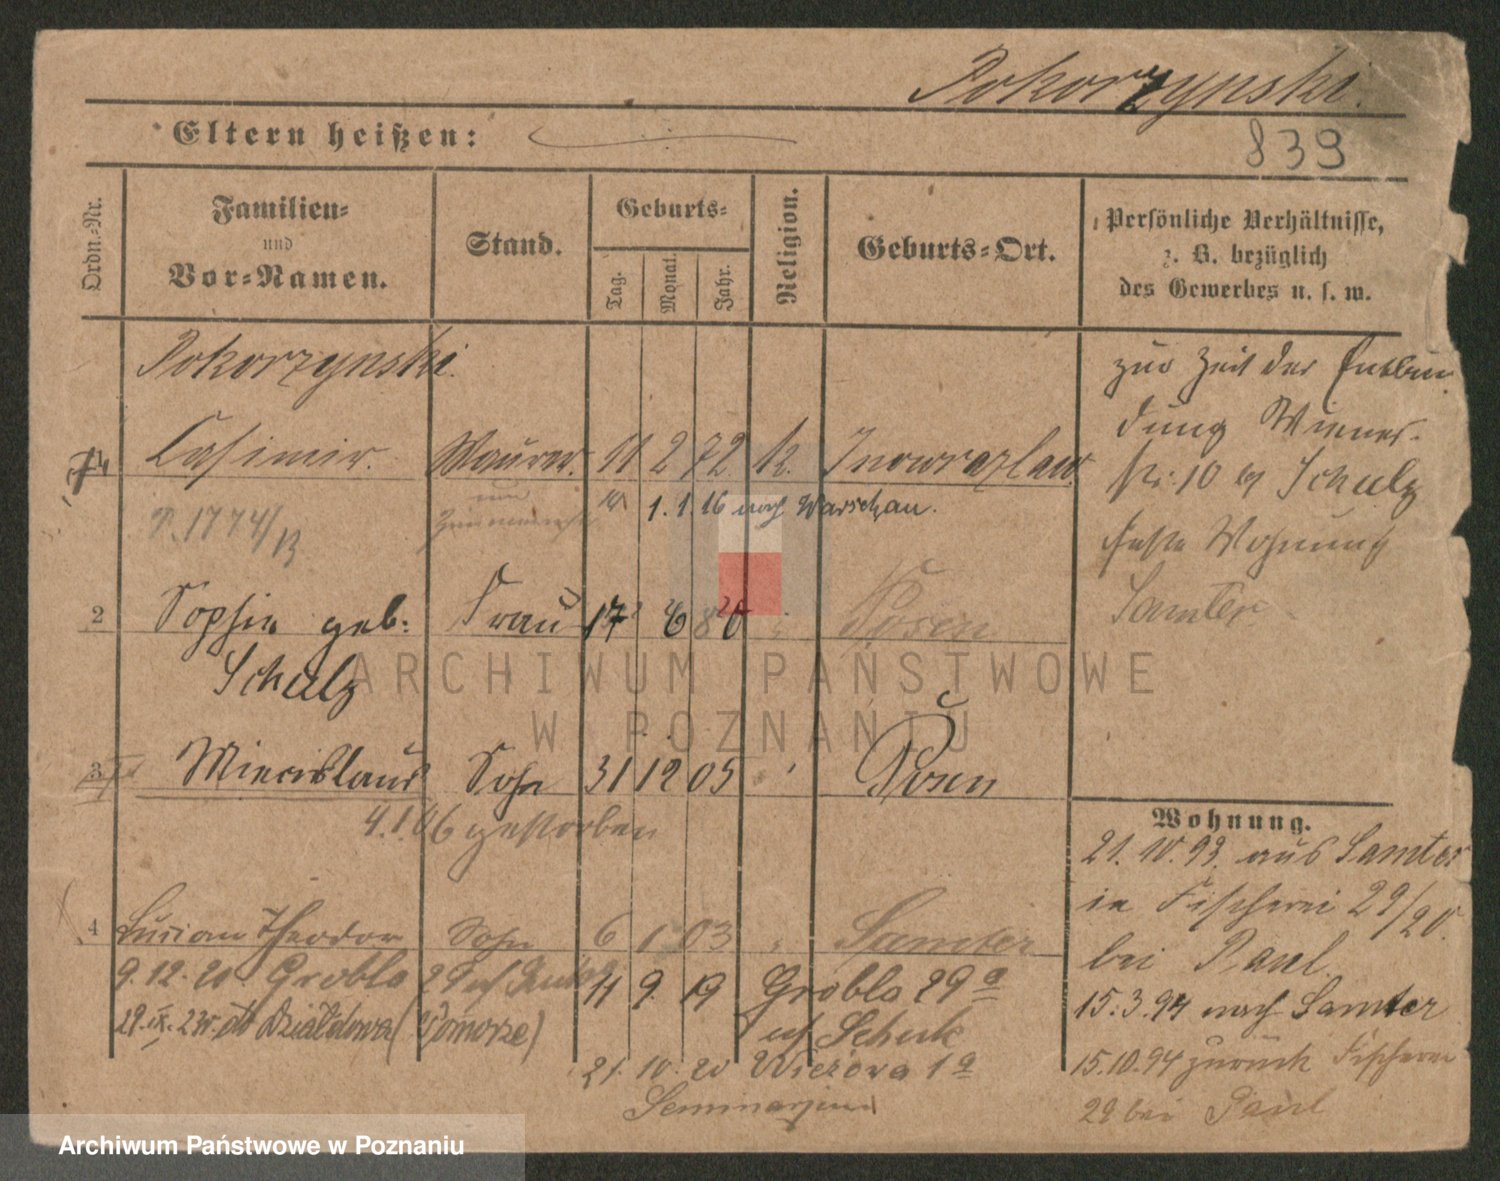 Pokorzynski.
Eltern heißen:
839
Ordn.-Nr.
Familien-
und
Vor-Namen.
Stand.
Geburts-
Tag.
Monat.
Jahr.
Religion.
Geburts-Ort.
Persönliche Verhältnisse,
z. B. bezüglich
des Gewerbes u. s. w.
Pokorzynski.
Casimir. Maurer. 11 2 72 k. Inowrazlaw
1. 1. 16 nach Warschau.
P. 1774/13
2 Sophie geb. Frau 17 6 Posen
Schulz
3 Miecislaus Sohn 31 12 05 Posen
4.1.06 gestorben
4 Lucian Theodor Sohn 6 1 03 Samter
9.12.20 Grobla 11 9. 19 Grobla 29 a
29.IX.23r. do Działdowa (Pomorze) Schulz
21. 10. 20 Wieżowa 1 a
zur Zeit der Entbin-
dung Wiener-
str. 10 bei Schulz
feste Wohnung
Samter
Wohnung.
21. 10. 93. aus Samter
in Fischerei 29/20.
bei Paul.
15.3.94 nach Samter
15.10.94 zurück Fischerei
29 bei Paul
ARCHIWUM PAŃSTWOWE
W POZNANIU
Archiwum Państwowe w Poznaniu